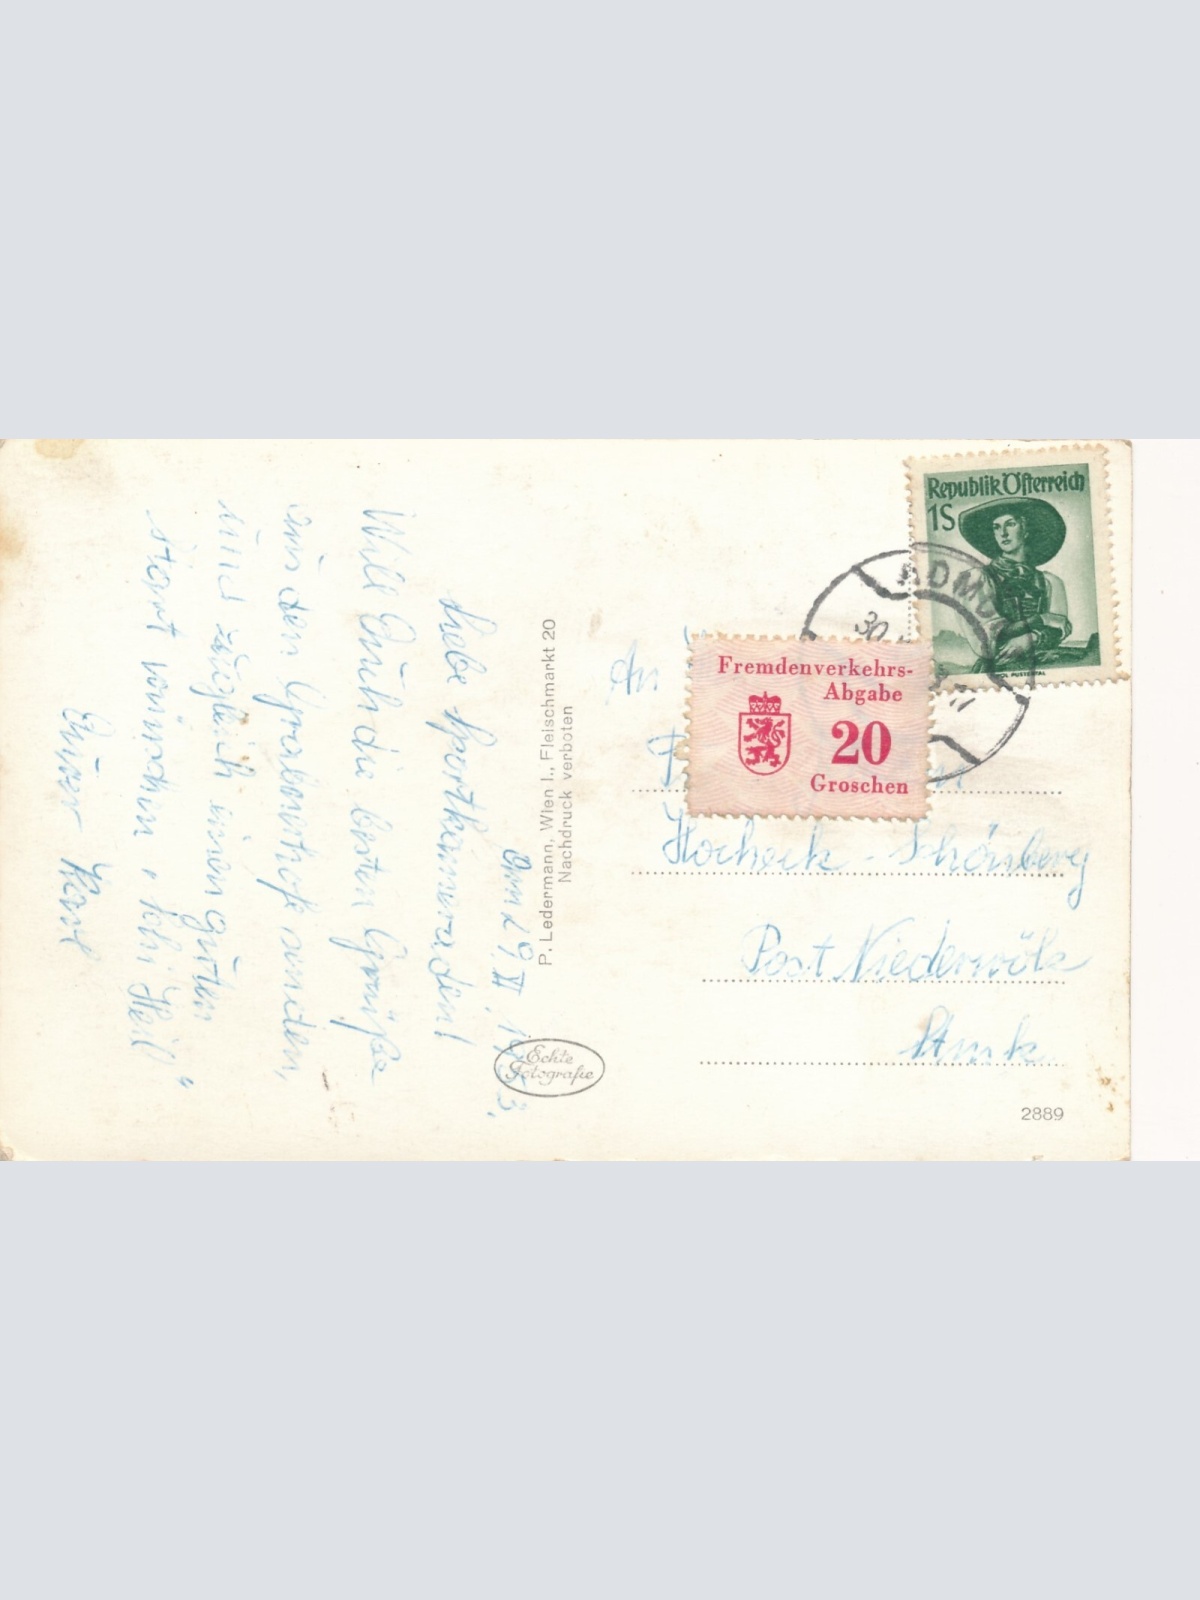 am 29. IV. 1953.
Liebe Sportkameraden!
Will Euch die besten Grüße
aus dem Grabnerhof senden,
und zugleich einen guten
start wünschen, „Schi Heil“
Euer Karl
P. Ledermann, Wien I., Fleischmarkt 20
Nachdruck verboten
Echte
Fotografie
Republik Österreich
1S
TIROL PUSTERTAL
ADMONT
30
Fremdenverkehrs-
Abgabe
20
Groschen
An
Hocheck - Schönberg
Post Niederwölz
Stmk.
2889